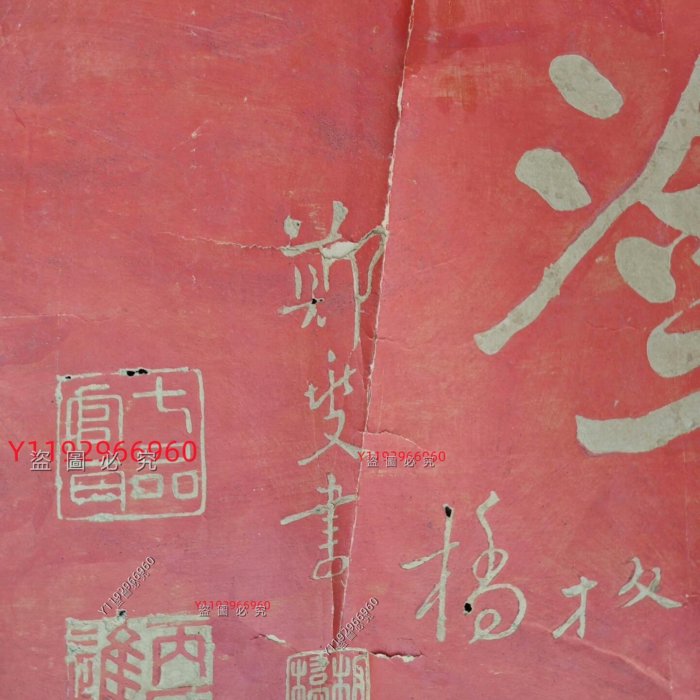 板橋
鄭燮書
七品
官耳
Y1192966960
盗圖必究
Y1192966960
盗圖必究
Y1192966960
盗圖必究
Y1192966960
盗圖必究
Y1192966960
盗圖必究